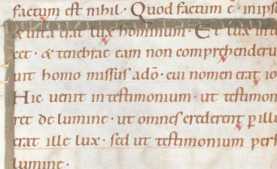 factum est nihil. Quod factum ē in ipso
& uita erat lux hominum. Et lux in te
cet. & tenebrae eam non comprehendera
uit homo missus a dō. cui nomen erat io
Hic uenit in testimonium. ut testimon
ret de lumine. ut omnes crederent p illu
erat ille lux. sed ut testimonium perh
lumine.